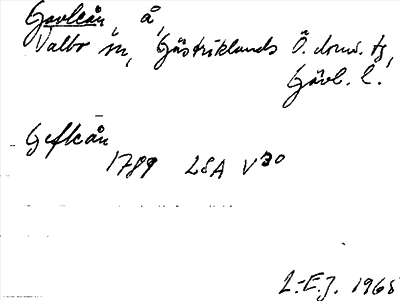 Gavleån, å,
Valbo sn, Gästriklands Ö. doms. tg,
Gävl. l.
Gefleån
1789 LSA V30
L-E.J. 1968